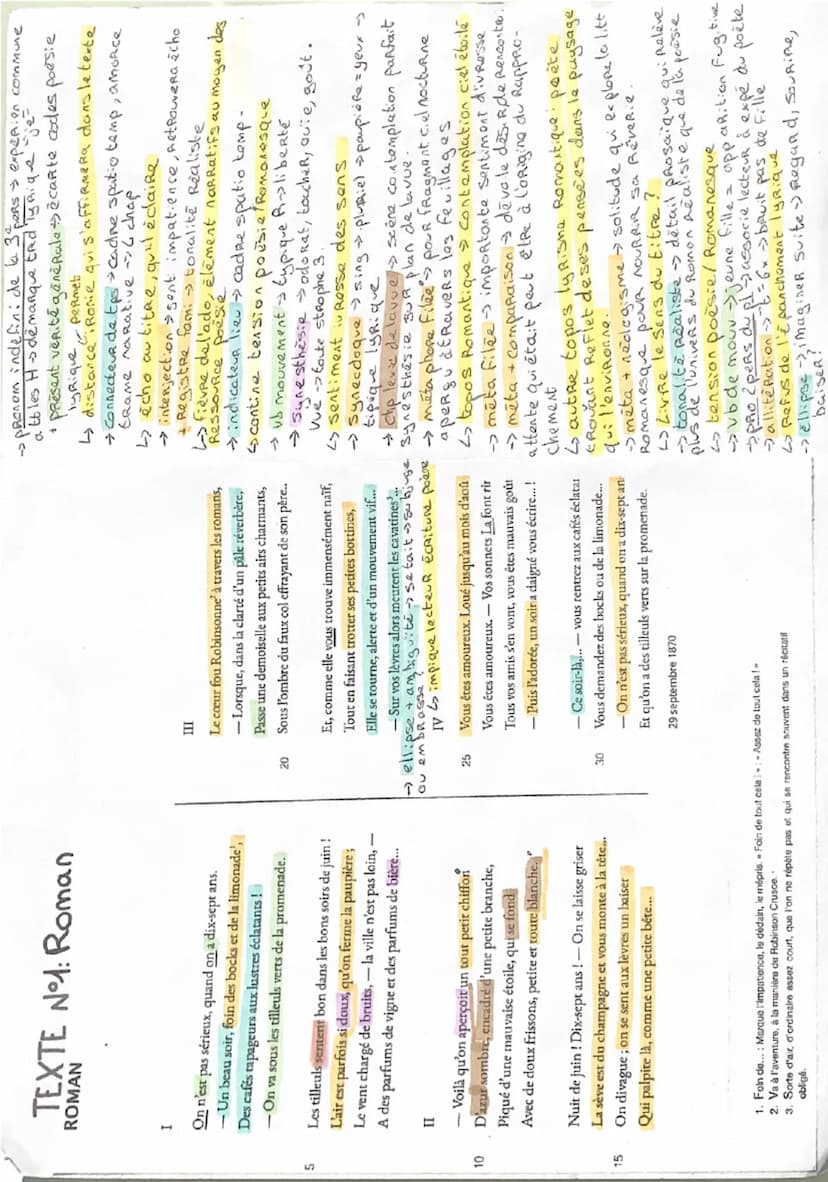 TEXTE N°1: Roman
ROMAN
I
On n'est pas sérieux, quand on a dix-sept ans.
– Un beau soir, foin des bocks et de la limonade¹,
Des cafés tapageurs aux lustres éclatants !
– On va sous les tilleuls verts de la promenade.
5 Les tilleuls sentent bon dans les bons soirs de juin !
L'air est parfois si doux, qu'on ferme la paupière ;
Le vent chargé de bruits, – la ville n'est pas loin, –
A des parfums de vigne et des parfums de bière...
II
– Voilà qu'on aperçoit un tout petit chiffon
10 D'azur sombre, encadré d'une petite branche,
Piqué d'une mauvaise étoile, qui se fond
Avec de doux frissons, petite et toute blanche...
Nuit de juin ! Dix-sept ans ! – On se laisse griser
La sève est du champagne et vous monte à la tête...
15 On divague ; on se sent aux lèvres un baiser
Qui palpite là, comme une petite bête...
III
Le cœur fou Robinsonne² à travers les romans,
– Lorsque, dans la clarté d'un pâle réverbère,
Passe une demoiselle aux petits airs charmants,
20 Sous l'ombre du faux col effrayant de son père..
Et, comme elle vous trouve immensément naïf,
Tout en faisant trotter ses petites bottines,
Elle se tourne, alerte et d'un mouvement vif...
– Sur vos lèvres alors meurent les cavatines³...
→ ellipse + ambiguïté → se tait → subjuge
ou embrassé?
IV ↳ impique lecteur écriture poème
25 Vous êtes amoureux. Loué jusqu'au mois d'aoû
Vous êtes amoureux. – Vos sonnets La font rir
Tous vos amis s'en vont, vous êtes mauvais goût
– Puis l'adorée, un soir a daigné vous écrire...!
– Ce soir-là,... – vous rentrez aux cafés éclatan
30 Vous demandez des bocks ou de la limonade...
– On n'est pas sérieux, quand on a dix-sept an
Et qu'on a des tilleuls verts sur la promenade.
29 septembre 1870
1. Foin de... : Marque l'impatience, le dédain, le mépris. « Foin de tout cela ! » : « Assez de tout cela ! »
2. Va à l'aventure, à la manière de Robinson Crusoe.
3. Sorte d'air, d'ordinaire assez court, que l'on ne répète pas et qui se rencontre souvent dans un récitatif
obligé.
→ pronom indéfini de la 3ᵉ pers → expérien commune
a ttles H → démarque trad lyrique "je"
+ présent vérité générale → écarte codes poésie
lyrique permet
↳ distance ironie qui s'affirmera dans le texte
→ connecteur de tps → cadre spatio temp, amorce
trame narrative → 4 chap
↳ écho au titre, qu'il éclaire
→ interjection → sent. impatience, retrouvera écho
+ registre fami → tonalité réaliste
↳ fièvre de l'ado, élément narratifs au moyen des
ressource poésie
→ indicateur lieu → cadre spatio temp.
↳ contine tension poésie/romanesque
→ vb mouvement → typique R → liberté
→ synesthésie → odorat, toucher, ouïe, goût.
vue → toute strophe 3.
↳ sentiment ivresse des sens
→ synecdoque → sing → pluriel → paupière = yeux →
typique lyrique
→ chp lexic de la vue → scène contemplation parfait
synesthésie sur plan de la vue.
→ métaphore filée → pour fragment ciel nocturne
aperçu à travers les feuillages
↳ topos romantique → contemplation ciel étoilé
→ méta filée → importante sentiment d'ivresse
→ méta + comparaison → dévoile désir de rencontre.
attente qui était peut être à l'origine du rappro-
chement
↳ autre topos lyrisme romantique: poète
trouvant reflet de ses pensées dans le paysage
qui l'environne.
→ méta + néologisme → solitude qui explore la litt
romanesque pour nourrir sa rêverie.
↳ Livre le sens du titre ?
→ tonalité réaliste → détail prosaïque qui relève
plus de l'univers du roman réaliste que de la poésie
↳ tension poésie/Romanesque
→ vb de mouv → jeune fille = apparition fugitive
→ pro (pers du pl) → associe lecteur à expé du poète
→ allitération → -t = 6x → bruit pas de fille
↳ Refus de l'épanchement lyrique
→ ellipse → imaginer suite → regard, sourire,
baiser?